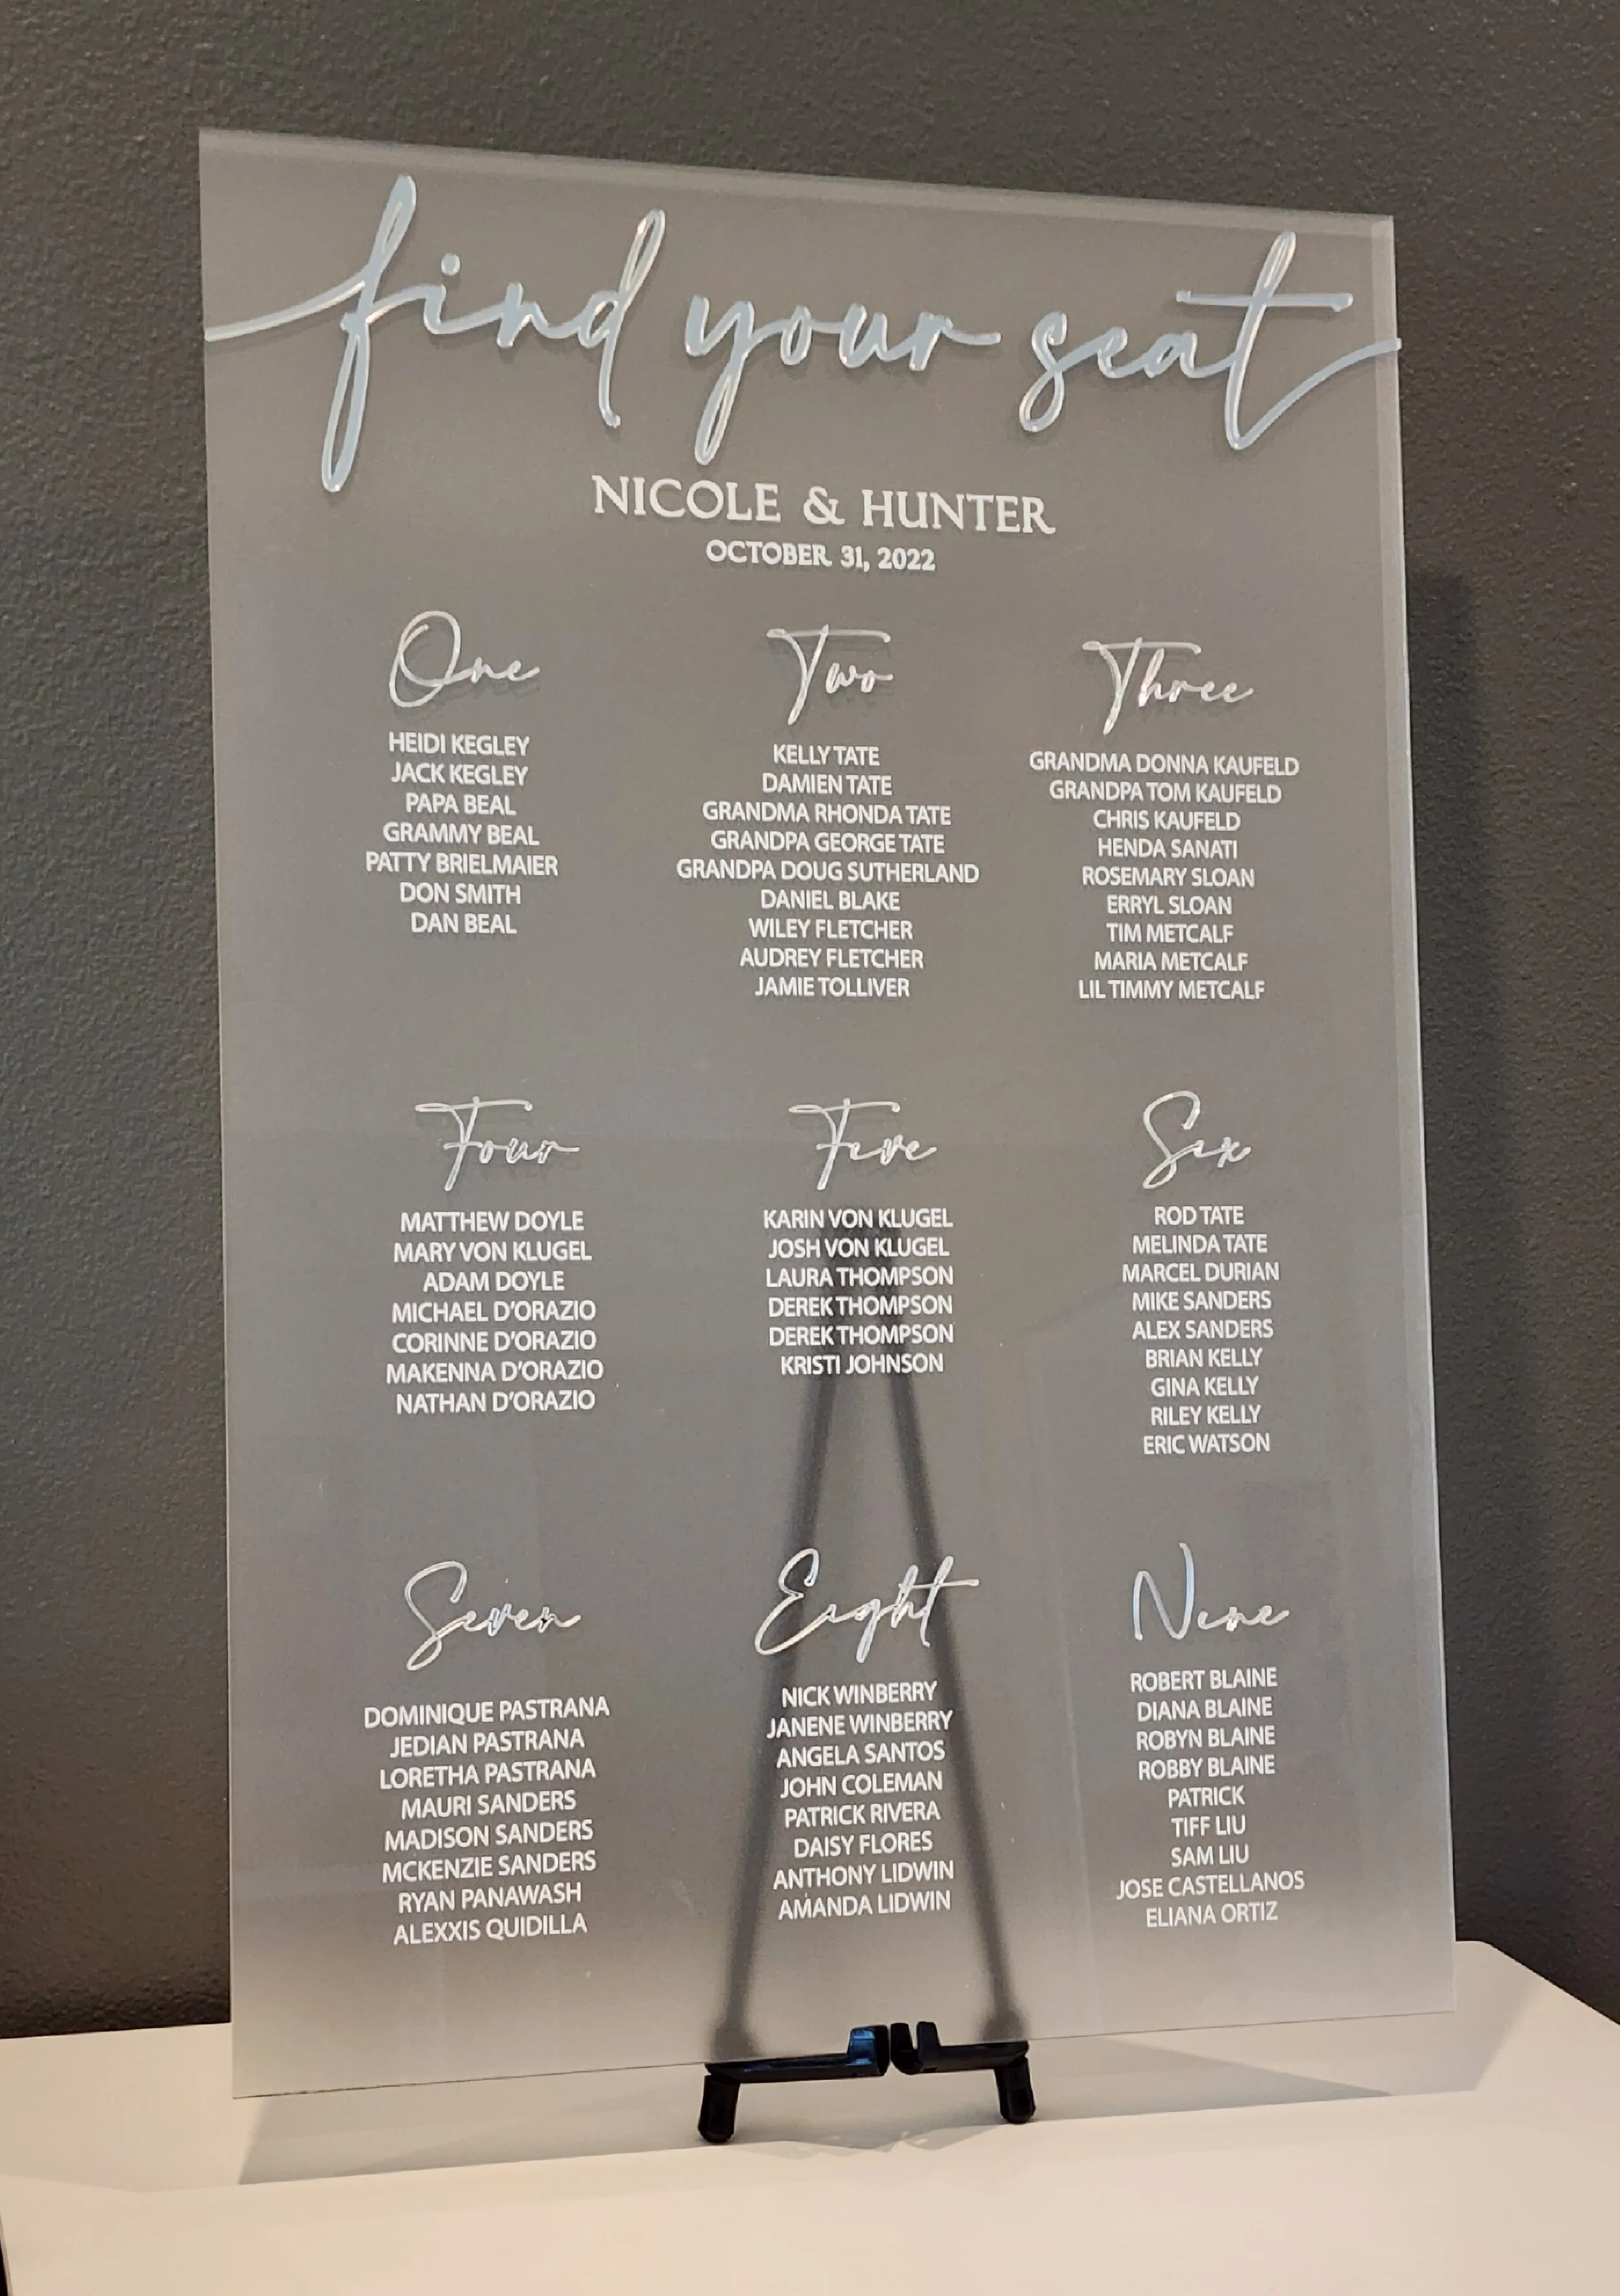 find your seat
NICOLE & HUNTER
OCTOBER 31, 2022
One
HEIDI KEGLEY
JACK KEGLEY
PAPA BEAL
GRAMMY BEAL
PATTY BRIELMAIER
DON SMITH
DAN BEAL
Two
KELLY TATE
DAMIEN TATE
GRANDMA RHONDA TATE
GRANDPA GEORGE TATE
GRANDPA DOUG SUTHERLAND
DANIEL BLAKE
WILEY FLETCHER
AUDREY FLETCHER
JAMIE TOLLIVER
Three
GRANDMA DONNA KAUFELD
GRANDPA TOM KAUFELD
CHRIS KAUFELD
HENDA SANATI
ROSEMARY SLOAN
ERRYL SLOAN
TIM METCALF
MARIA METCALF
LIL TIMMY METCALF
Four
MATTHEW DOYLE
MARY VON KLUGEL
ADAM DOYLE
MICHAEL D'ORAZIO
CORINNE D'ORAZIO
MAKENNA D'ORAZIO
NATHAN D'ORAZIO
Five
KARIN VON KLUGEL
JOSH VON KLUGEL
LAURA THOMPSON
DEREK THOMPSON
DEREK THOMPSON
KRISTI JOHNSON
Six
ROD TATE
MELINDA TATE
MARCEL DURIAN
MIKE SANDERS
ALEX SANDERS
BRIAN KELLY
GINA KELLY
RILEY KELLY
ERIC WATSON
Seven
DOMINIQUE PASTRANA
JEDIAN PASTRANA
LORETHA PASTRANA
MAURI SANDERS
MADISON SANDERS
MCKENZIE SANDERS
RYAN PANAWASH
ALEXXIS QUIDILLA
Eight
NICK WINBERRY
JANENE WINBERRY
ANGELA SANTOS
JOHN COLEMAN
PATRICK RIVERA
DAISY FLORES
ANTHONY LIDWIN
AMANDA LIDWIN
Nine
ROBERT BLAINE
DIANA BLAINE
ROBYN BLAINE
ROBBY BLAINE
PATRICK
TIFF LIU
SAM LIU
JOSE CASTELLANOS
ELIANA ORTIZ